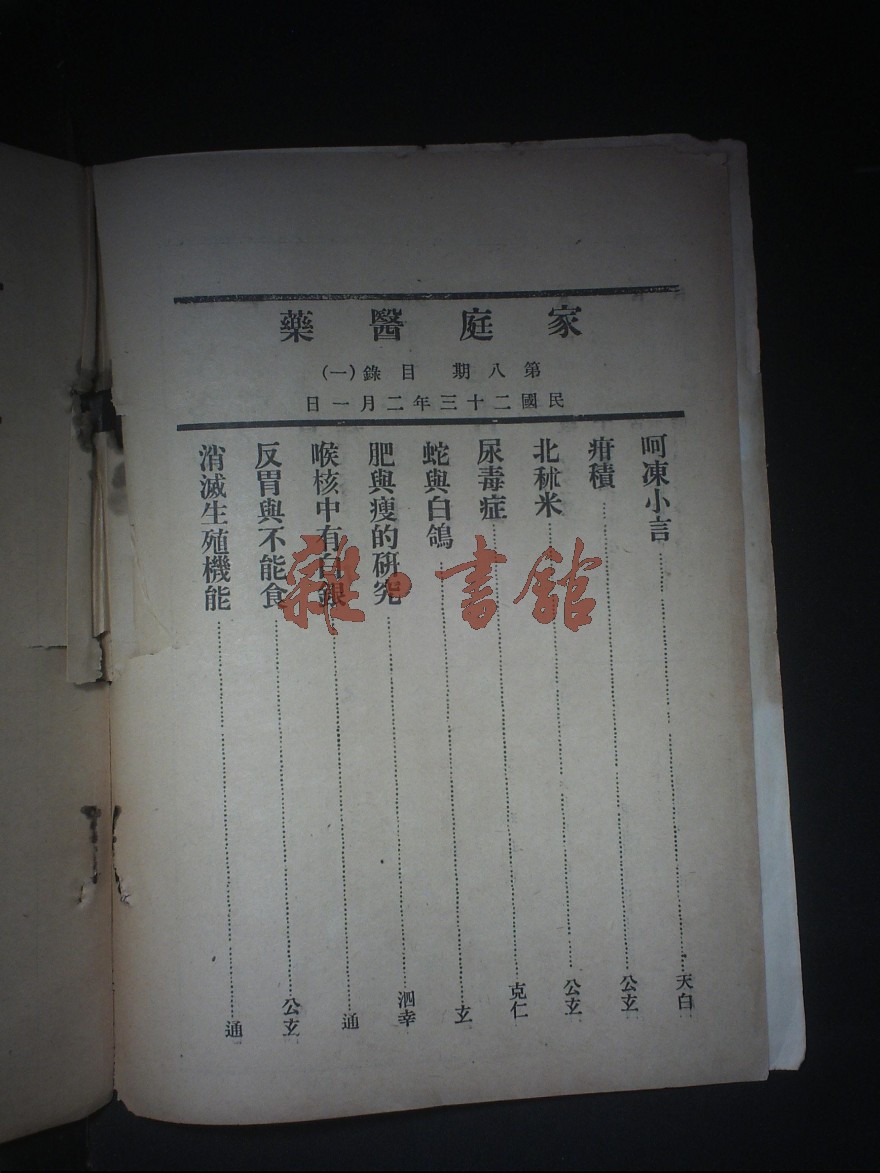 家庭醫藥
第八期 目錄(一)
民國二十三年二月一日
呵凍小言 天白
疳積 公玄
北秫米 公玄
尿毒症 克仁
蛇與白鴿 玄
肥與瘦的研究 泗幸
喉核中有白銀 通
反胃與不能食 公玄
消滅生殖機能 通
雜·書館